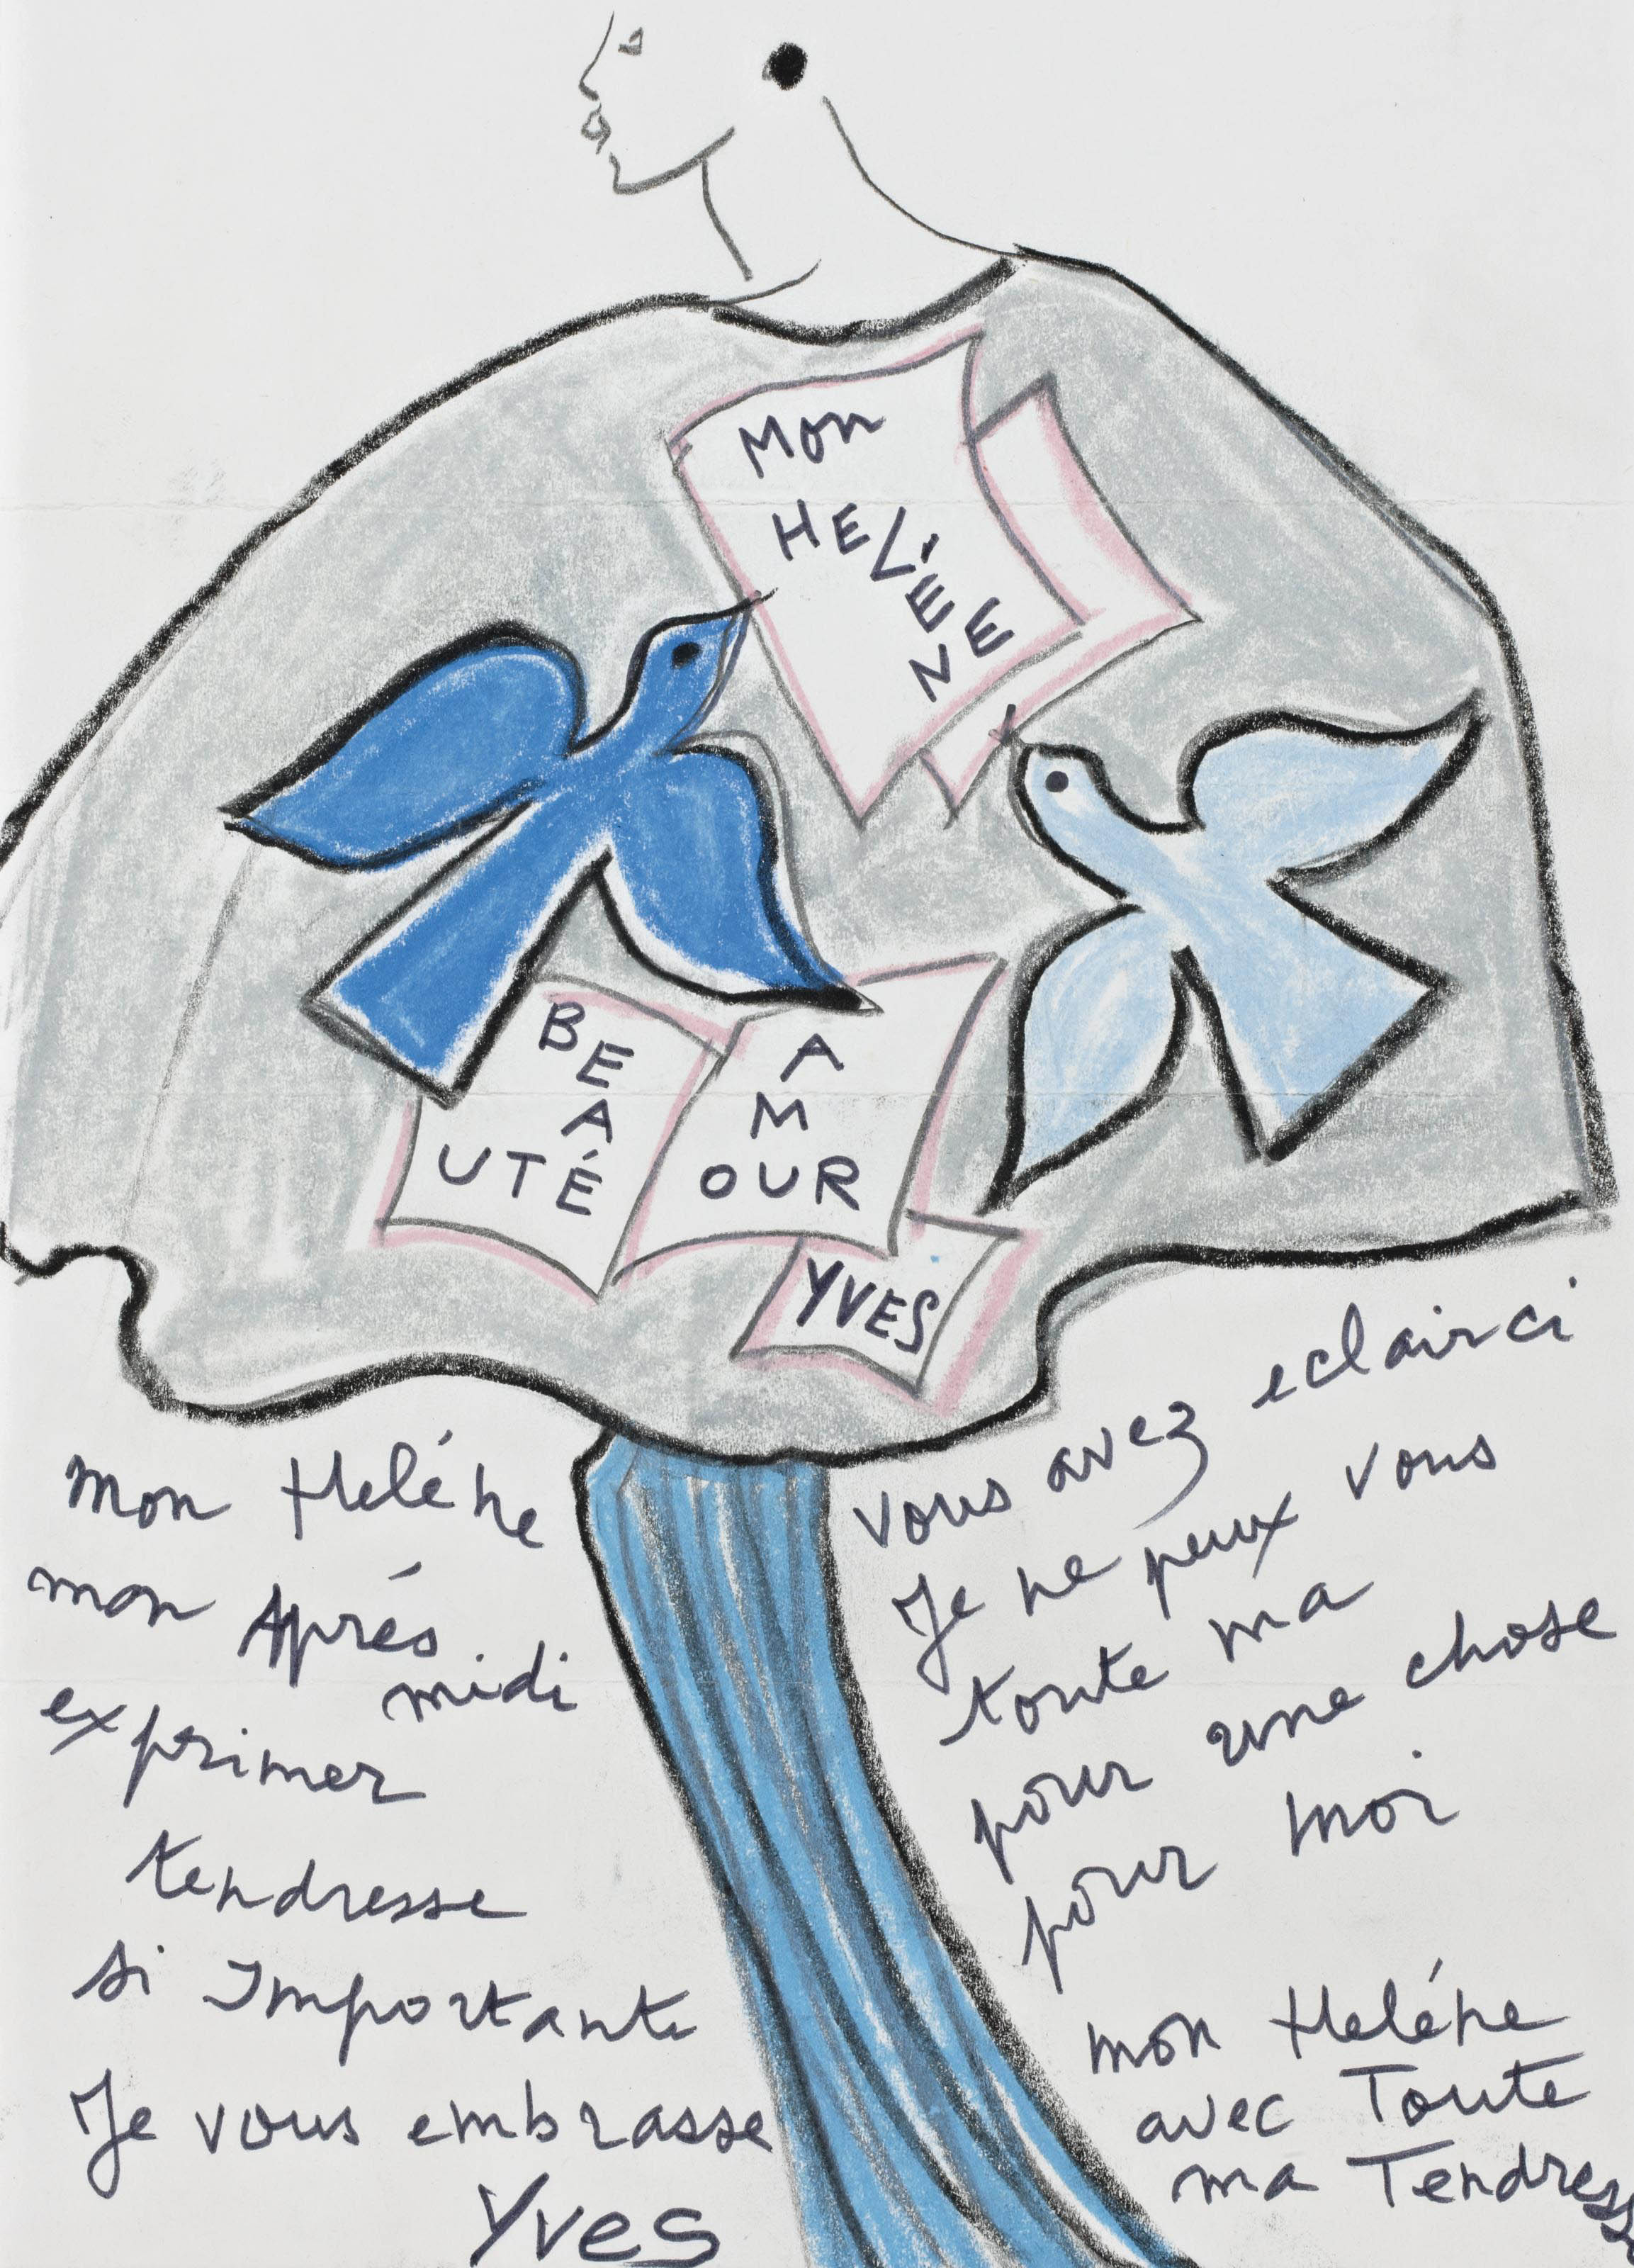 Mon
HELÉNE
BE
A
UTÉ
A
M
OUR
YVES
mon Heléne vous avez eclairci
mon Aprés midi Je ne peux vous
exprimer toute ma
tendresse pour une chose
si Importante pour moi
Je vous embrasse mon Heléne
Yves avec Toute
ma Tendresse